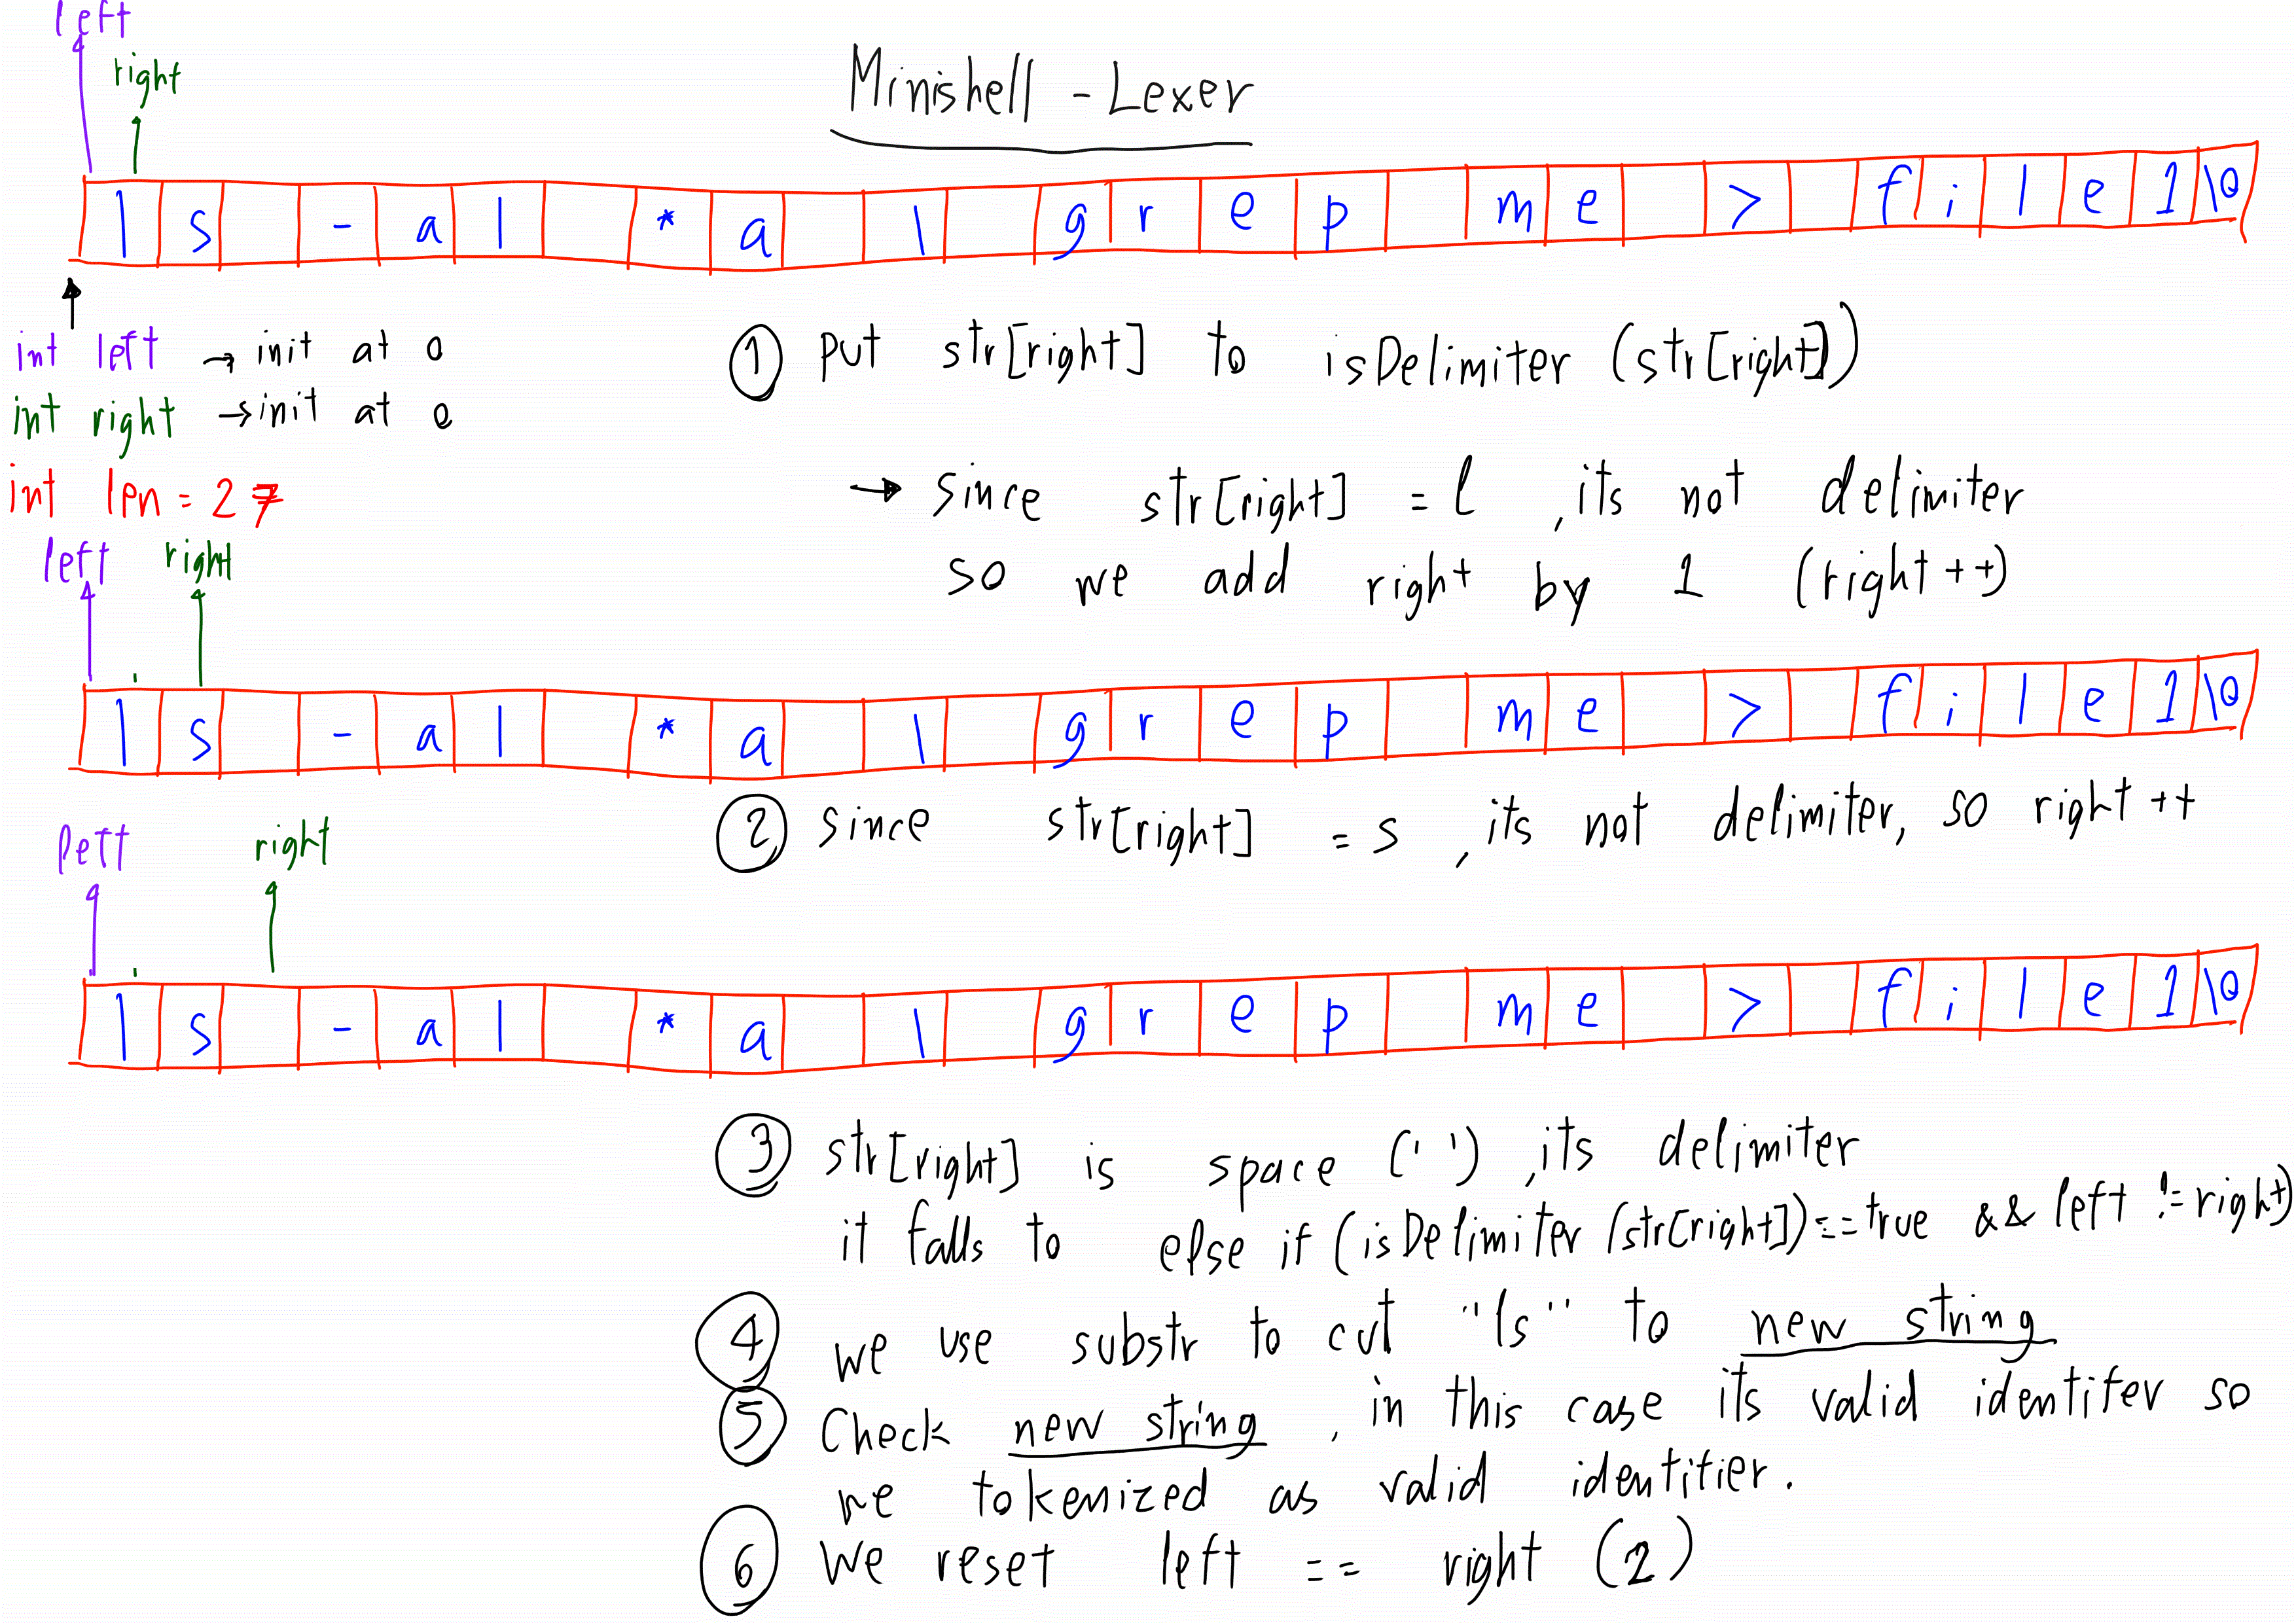 left
right
Minishell - Lexer
l s - a l * a | g r e p m e > f i l e 1 \0
int left → init at 0
int right → init at 0
int len = 27
① put str[right] to isDelimiter (str[right])
→ since str[right] = l , its not delimiter
so we add right by 1 (right++)
left right
l s - a l * a | g r e p m e > f i l e 1 \0
② since str[right] = s , its not delimiter, so right ++
left right
l s - a l * a | g r e p m e > f i l e 1 \0
③ str[right] is space (' ') , its delimiter
it falls to else if (isDelimiter (str[right]) == true && left != right)
④ we use substr to cut "ls" to new string
⑤ Check new string , in this case its valid identifer so
we tokenized as valid identifier.
⑥ We reset left == right (2)